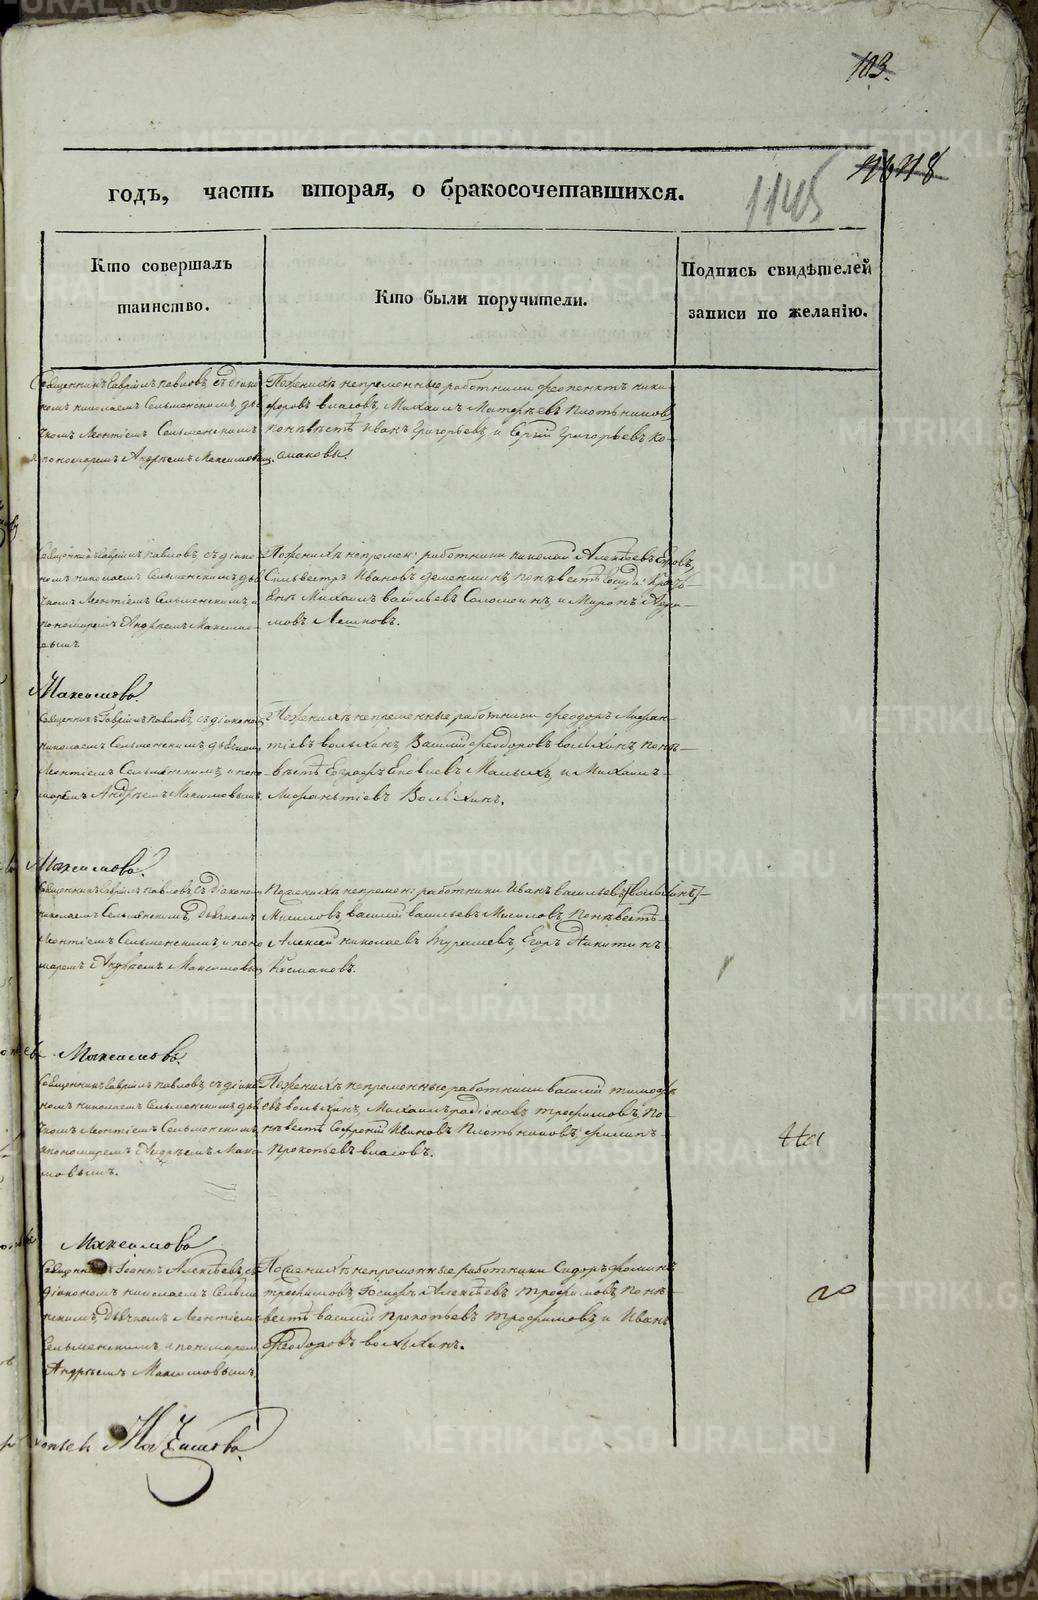 103.
1145
годъ, часть вторая, о бракосочетавшихся.
Кто совершалъ
таинство.
Кто были поручители.
Подпись свидѣтелей
записи по желанію.
Священникъ Гавріилъ Павловъ, съ діако-
номъ Николаемъ Сельменскимъ, дья-
чкомъ Леонтіемъ Сельменскимъ
и пономаремъ Андреемъ Максимовымъ.
По женихѣ непременные работники Феопентъ Ники-
форовъ Власовъ, Михаилъ Матфѣевъ Плотниковъ
по невѣстѣ Иванъ Григорьевъ, и Сергій Григорьевъ Ко-
смаковы.
Священникъ Гавріилъ Павловъ, съ діако-
номъ Николаемъ Сельменскимъ, дья-
чкомъ Леонтіемъ Сельменскимъ, и
пономаремъ Андреемъ Максимо-
вымъ
По женихѣ непремен: работники Николай Алексѣевъ
Сильвестръ Ивановъ Деменшинъ, по невѣстѣ
Михаилъ Васильевъ Соломеинъ, и Миронъ
мовъ
Максимовъ.
Священникъ Гавріилъ Павловъ, съ діакономъ
Николаемъ Сельменскимъ, дьячкомъ
Леонтіемъ Сельменскимъ, и поно-
маремъ Андреемъ Максимовымъ.
По женихѣ непременные работники Феодоръ Лифан-
тіевъ Волыхинъ, Василій Феодоровъ Волыхинъ, по не-
вѣстѣ Малыхъ, и Михаилъ
Лифантіевъ Волыхинъ.
Максимовъ.
Священникъ Гавріилъ Павловъ съ діакономъ
Николаемъ Сельменскимъ, дьячкомъ
Леонтіемъ Сельменскимъ, и поно-
маремъ Андреемъ Максимовымъ
По женихѣ непремен: работники Иванъ Васильевъ
Мисиловъ, Василій Васильевъ Мисиловъ, по невѣстѣ
Алексѣй Николаевъ Турышевъ, Егоръ Никитинъ
Космаковъ.
Максимовъ.
Священникъ Гавріилъ Павловъ, съ діако-
номъ Николаемъ Сельменскимъ, дья-
чкомъ Леонтіемъ Сельменскимъ,
и пономаремъ Андреемъ Макси-
мовымъ.
По женихѣ непременные работники Василій Тимофе-
евъ Волыхинъ, Михаилъ Радіоновъ Трофимовъ, по
невѣстѣ Софроній Ивановъ Плотниковъ, Филипъ
Прокопьевъ Власовъ.
На
Максимовъ
Священникъ Іоаннъ Алексѣевъ, съ
діакономъ Николаемъ Сельме-
нскимъ, дьячкомъ Леонтіемъ
Сельменскимъ, и пономаремъ
Андреемъ Максимовымъ.
По женихѣ непременные работники Сидоръ Фоминъ
Трофимовъ, Іосифъ Алексѣевъ Трофимовъ, по не-
вѣстѣ Василій Прокопьевъ Трофимовъ, и Иванъ
Феодоровъ Волыхинъ.